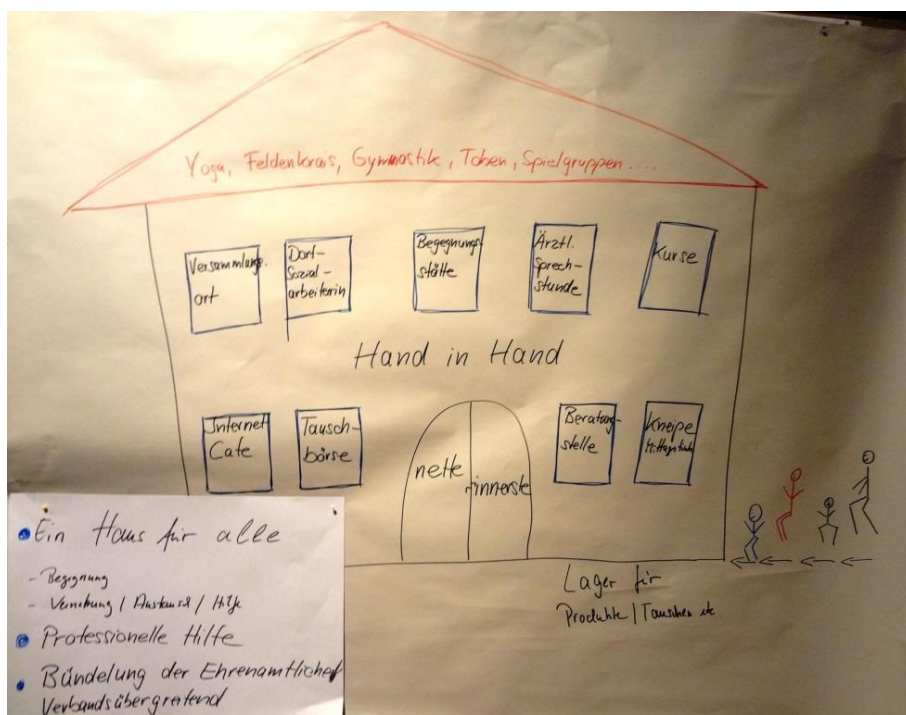 Yoga, Feldenkrais, Gymnastik, Toben, Spielgruppen....
Versammlungs-
ort
Dorf-
Sozial-
arbeiterin
Begegnungs
stätte
Ärztl.
Sprech-
stunde
Kurse
Hand in Hand
Internet
Cafe
Tausch-
börse
nette
Beratung-
stelle
Kneipe
Mittagstisch
Lager für
Produkte / Tauschen etc
Ein Haus für alle
- Begegnung
- Vernetzung / Austausch / Hilfe
Professionelle Hilfe
Bündelung der Ehrenamtlichen
Verbandsübergreifend